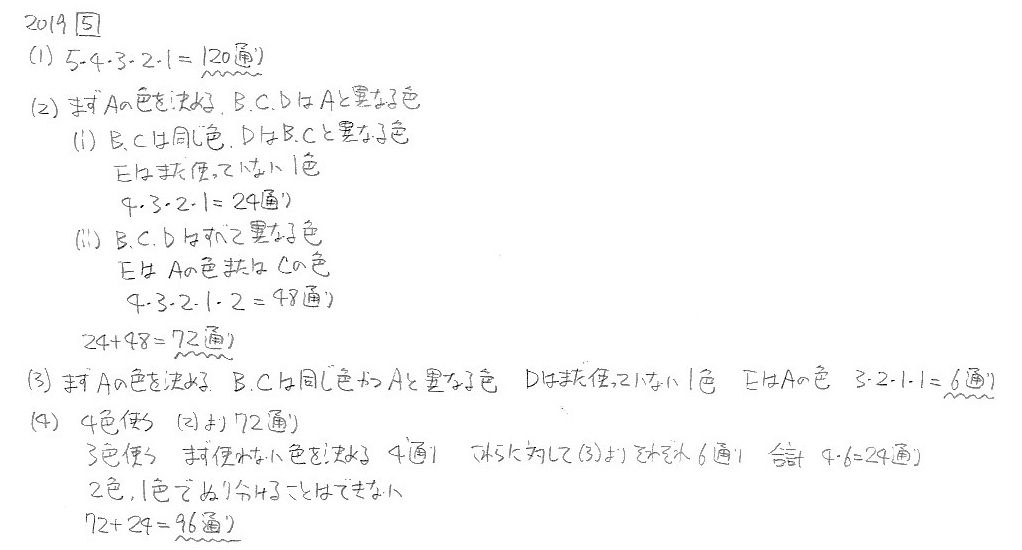 2019 5
(1) 5・4・3・2・1=120通り
(2) まずAの色を決める. B.C.DはAと異なる色
(i) B.Cは同じ色. DはB.Cと異なる色
Eはまだ使っていない1色
4・3・2・1=24通り
(ii) B.C.Dはすべて異なる色
EはAの色またはCの色
4・3・2・1・2=48通り
24+48=72通り
(3) まずAの色を決める. B.Cは同じ色かつAと異なる色 Dはまだ使っていない1色 EはAの色 3・2・1・1=6通り
(4) 4色使う (2)より72通り
3色使う まず使わない色を決める 4通り これらに対して(3)よりそれぞれ6通り 合計 4・6=24通り
2色,1色でぬり分けることはできない
72+24=96通り